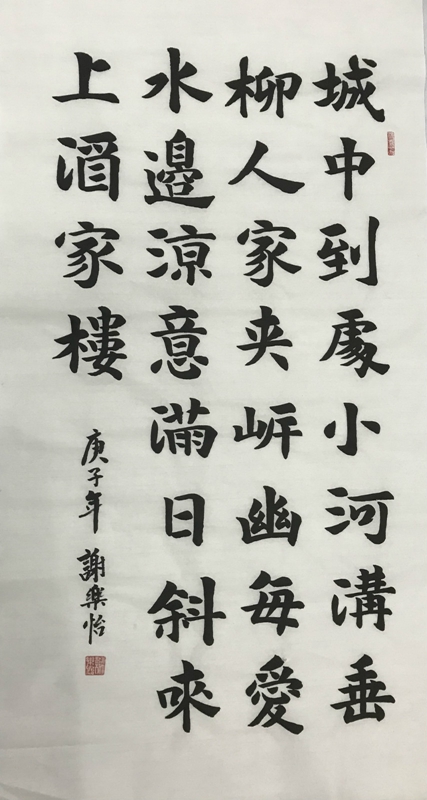 城中到處小河溝垂
柳人家夾岍幽每愛
水邊涼意滿日斜來
上酒家樓
庚子年 謝樂怡